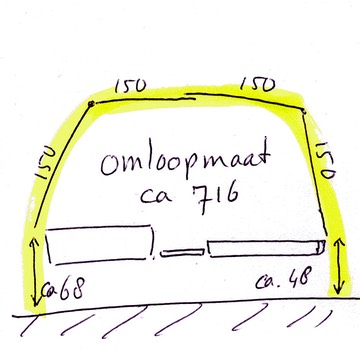 150 150
150 150
omloopmaat
ca 716
ca 68 ca. 48